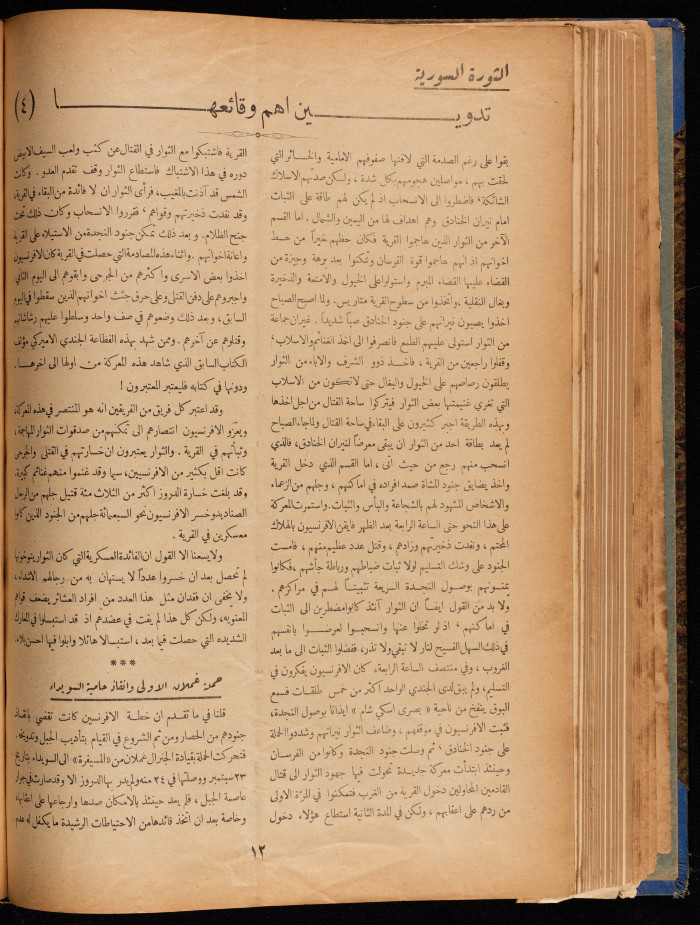 الثورة السورية
تدويـــــــــين اهم وقائعهـــــــــا (٤)
بقوا على رغم الصدمة التي لاقتها صفوفهم الامامية والخسائر التي
لحقت بهم ، مواصلين هجومهم بكل شدة ، ولكن صدتهم الاسلاك
الشائكة ، فاضطروا الى الانسحاب اذ لم يكن لهم طاقة على الثبات
امام نيران الخنادق وهم اهداف لها من اليمين والشمال . اما القسم
الآخر من الثوار الذين هاجموا القرية فكان حظهم خيراً من حظ
اخوانهم اذ انهم هاجموا قوة الفرسان وتمكنوا بعد برهة وجيزة من
القضاء عليها القضاء المبرم واستولوا على الخيول والامتعة والذخيرة
وبغال النقلية ، واتخذوا من سطوح القرية متاريس . ولما اصبح الصباح
اخذوا يصبون نيرانهم على جنود الخنادق صباً شديداً . غير ان جماعة
من الثوار استولى عليهم الطمع فانصرفوا الى اخذ الغنائم والاسلاب ؛
وقفلوا راجعين من القرية ، فأخذ ذوو الشرف والاباء من الثوار
يطلقون رصاصهم على الخيول والبغال حتى لا تكون من الاسلاب
التي تغري غنيمتها بعض الثوار فيتركوا ساحة القتال من اجل اخذها
وبهذه الطريقة اجبر كثيرون على البقاء في ساحة القتال ولما جاء الصباح
لم يعد بطاقة احد من الثوار ان يبقى معرضاً لنيران الخنادق، فالذي
انسحب منهم رجع من حيث اتى ، اما القسم الذي دخل القرية
واخذ يضايق جنود المشاة صمد افراده في اماكنهم ، وجلهم من الزعماء
والاشخاص المشهود لهم بالشجاعة والبأس والثبات. واستمرت المعركة
على هذا النحو حتى الساعة الرابعة بعد الظهر فايقن الافرنسيون بالهلاك
المحتم ، ونفدت ذخيرتهم وزادهم ، وقتل عدد عظيم منهم ، فامست
الجنود على وشك التسليم لولا ثبات ضباطهم ورباطة جأشهم ، فكانوا
يمنونهم بوصول النجدة السريعة تثبيتاً لهم في مراكزهم .
ولا بد من القول ايضاً ان الثوار آنئذ كانوا مضطرين الى الثبات
في اماكنهم ، اذ لو تخلوا عنها وانسحبوا لعرضوا بانفسهم
في ذلك السهل الفسيح لنار لا تبقي ولا تذر، ففضلوا الثبات الى ما بعد
الغروب ، وفي منتصف الساعة الرابعة، كان الافرنسيون يفكرون في
التسليم، ولم يبق لدى الجندي الواحد اكثر من خمس طلقات فسمع
البوق ينفخ من ناحية « بصرى اسكي شام » ايذاناً بوصول النجدة،
فثبت الافرنسيون في موقفهم ، وضاعف الثوار نيرانهم وشددوا الحملة
على جنود الخنادق ، ثم وصلت جنود النجدة وكانوا من الفرسان
وحينئذ ابتدأت معركة جديدة تحولت فيها جهود الثوار الى قتال
القادمين المحاولين دخول القرية من الغرب فتمكنوا في المرة الاولى
من ردهم على اعقابهم ، ولكن في المدة الثانية استطاع هؤلاء دخول
القرية فاشتبكوا مع الثوار في القتال عن كثب ولعب السيف الابيض
دوره في هذا الاشتباك فاستطاع الثوار وقف تقدم العدو . وكانت
الشمس قد آذنت بالمغيب، فرأى الثوار ان لا فائدة من البقاء في القرية،
وقد نفدت ذخيرتهم وقواهم ، فقرروا الانسحاب وكان ذلك تحت
جنح الظلام . و بعد ذلك تمكن جنود النجدة من الاستيلاء على القرية
واعانة اخوانهم . واثناء هذه المصادمة التي حصلت في القرية كان الافرنسيون
اخذوا بعض الاسرى واكثرهم من الجرحى وابقوهم الى اليوم الثاني
واجبروهم على دفن القتلى وعلى حرق جثث اخوانهم الذين سقطوا في اليوم
السابق ، وبعد ذلك وضعوهم في صف واحد وسلطوا عليهم رشاشاتهم
وقتلوهم عن آخرهم . وممن شهد بهذه الفظاعة الجندي الاميركي مؤلف
الكتاب السابق الذي شاهد هذه المعركة من اولها الى اخرها .
ودونها في كتابه فليعتبر المعتبرون !
وقد اعتبر كل فريق من الفريقين انه هو المنتصر في هذه المعركة،
ويعزو الافرنسيون انتصارهم الى تمكنهم من صد قوات الثوار المهاجمة،
وثباتهم في القرية . والثوار يعتبرون ان خسارتهم في القتلى والجرحى
كانت اقل بكثير من الافرنسيين، سيما وقد غنموا منهم غنائم كثيرة
وقد بلغت خسارة الدروز اكثر من الثلاث مئة قتيل جلهم من الرجال
الصناديد وخسر الافرنسيون نحو السبعمائة جلهم من الجنود الذين كانوا
معسكرين في القرية .
ولا يسعنا الا القول ان الفائدة العسكرية التي كان الثوار يتوخونها
لم تحصل بعد ان خسروا عدداً لا يستهان به من رجالهم الاشداء،
ولا يخفى ان فقدان مثل هذا العدد من افراد العشائر يضعف قواهم
المعنوية، ولكن كل هذا لم يفت في عضدهم اذ قد استبسلوا في المعارك
الشديده التي حصلت فيما بعد ، استبسالا هائلا وابلوا فيها احسن بلاء .
***
حملة غملان الاولى وانقاذ حامية السويداء
قلنا في ما تقدم ان خطة الافرنسيين كانت تقضي بانقاذ
جنودهم من الحصار ومن ثم الشروع في القيام بتأديب الجبل وتدويخه .
فتحركت الحملة بقيادة الجنرال غملان من «المسيفرة» الى السويداء بتاريخ
٢٣ سبتمبر ووصلتها في ٢٤ منه ولم يدر بها الدروز الا وقد صارت في جوار
عاصمة الجبل ، فلم يعد حينئذ بالامكان صدها وارجاعها على اعقابها،
وخاصة بعد ان اتخذ قائدها من الاحتياطات الرشيدة ما يكفل له عدم
١٢